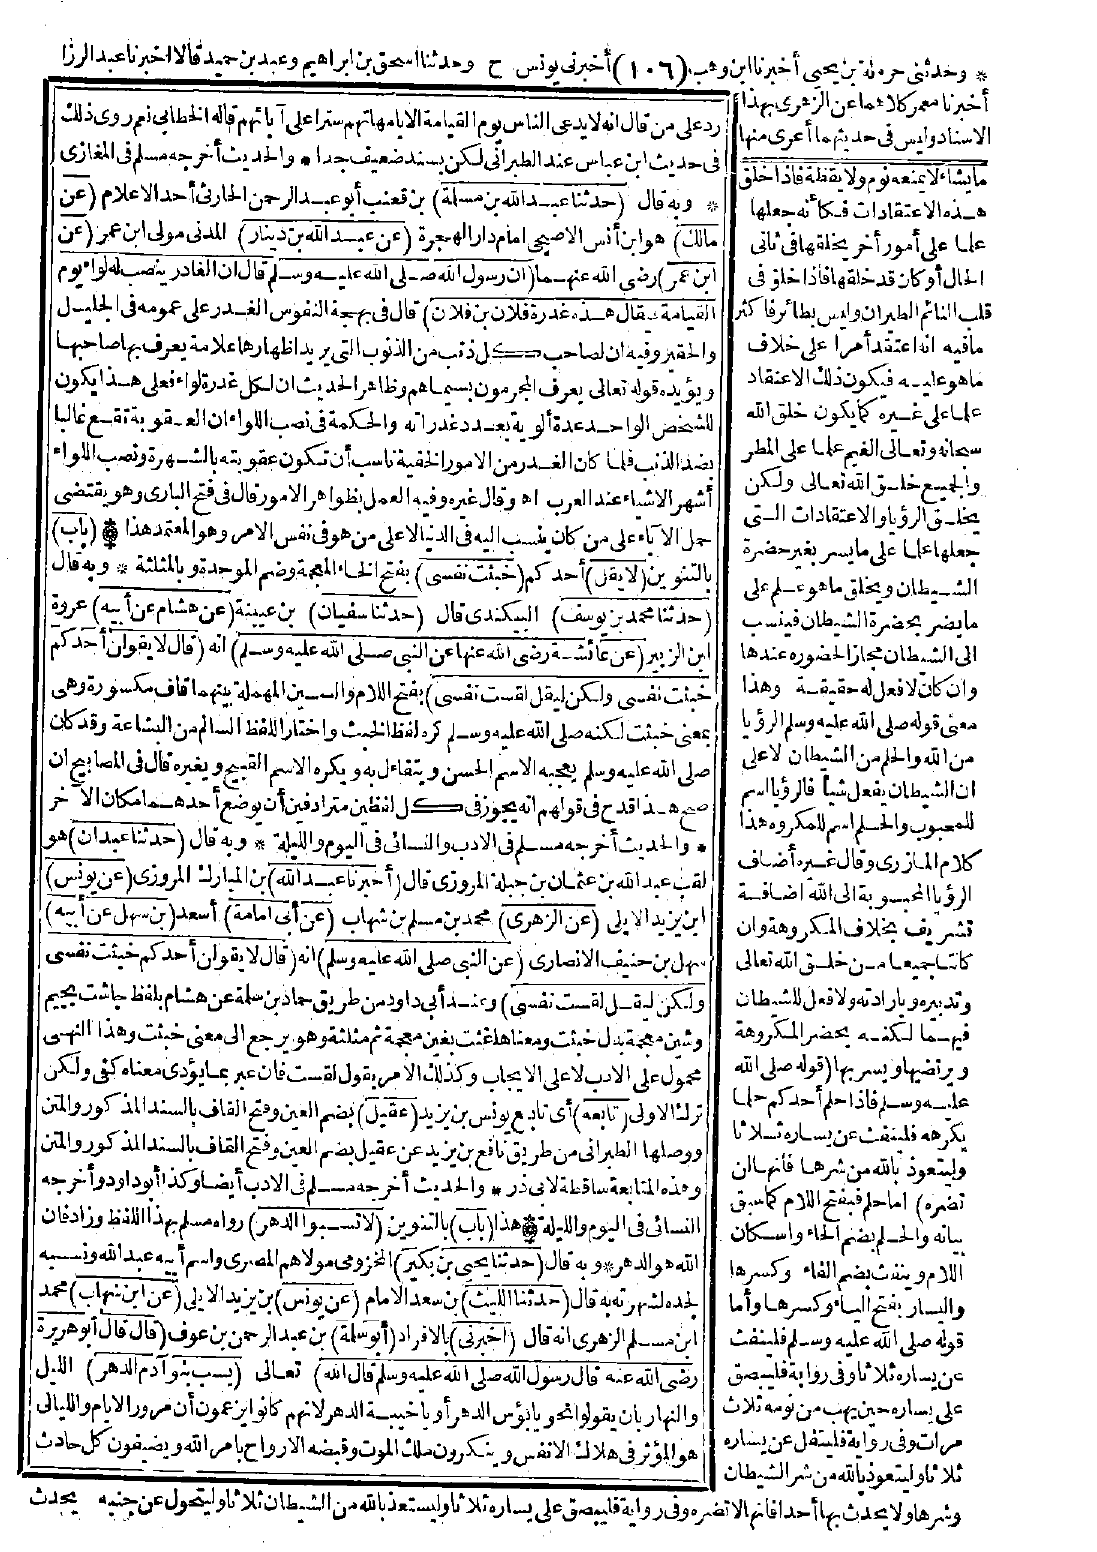 * وحدثني حرملة بن يحيى أخبرنا ابن وهب (١٠٦) أخبرني يونس ح وحدثنا اسحق بن ابراهيم وعبد بن حميد قالا اخبرنا عبد الرزا
أخبرنا معمر كلاهما عن الزهري بهذا
الاسناد وليس في حديثهما أعرى منها
ما يشاء لا يمنعه نوم ولا يقظة فاذا خلق
هذه الاعتقادات فكأنه جعلها
علما على أمور أخر يخلقها في ثاني
الحال أو كان قد خلقها فاذا خلق في
قلب النائم الطيران وليس بطائر فاكثر
مافيه انه اعتقد أمرا على خلاف
ماهو عليه فيكون ذلك الاعتقاد
علما على غيره كما يكون خلق الله
سبحانه وتعالى الغيم علما على المطر
والجميع خلق الله تعالى ولكن
يخلق الرؤيا والاعتقادات التي
جعلها علما على ما يسر بغير حضرة
الشيطان ويخلق ما هو علم على
مايضر بحضرة الشيطان فينسب
الى الشيطان مجازا لحضوره عندها
وان كان لا فعل له حقيقة وهذا
معنى قوله صلى الله عليه وسلم الرؤيا
من الله والحلم من الشيطان لا على
ان الشيطان يفعل شيأ فالرؤيا اسم
للمحبوب والحلم اسم للمكروه هذا
كلام المازري وقال غيره أضاف
الرؤيا المحبوبة الى الله اضافة
تشريف بخلاف المكروهة وان
كانتا جميعا من خلق الله تعالى
وتدبيره وبارادته ولا فعل للشيطان
فيهما لكنه يحضر المكروهة
ويرتضيها ويسر بها (قوله صلى الله
عليه وسلم فاذا حلم أحدكم حلما
يكرهه فلينفث عن يساره ثلاثا
وليتعوذ بالله من شرها فانها لن
تضره) اما حلم فبفتح اللام كما سبق
بيانه والحلم بضم الحاء واسكان
اللام وينفث بضم الفاء وكسرها
واليسار بفتح الياء وكسرها وأما
قوله صلى الله عليه وسلم فلينفث
عن يساره ثلاثا وفي رواية فليبصق
على يساره حين يهب من نومه ثلاث
مرات وفي رواية فليتفل عن يساره
ثلاثا وليتعوذ بالله من شر الشيطان
رد على من قال انه لا يدعى الناس يوم القيامة الا بامهاتهم سترا على آبائهم قاله الخطابي نعم روى ذلك
في حديث ابن عباس عند الطبراني لكن بسند ضعيف جدا * والحديث أخرجه مسلم في المغازي
* وبه قال (حدثنا عبد الله بن مسلمة) بن قعنب أبو عبد الرحمن الحارثي أحد الاعلام (عن
مالك) هو ابن أنس الاصبحي امام دار الهجرة (عن عبد الله بن دينار) المدني مولى ابن عمر (عن
ابن عمر) رضى الله عنهما (ان رسول الله صلى الله عليه وسلم قال ان الغادر ينصب له لواء يوم
القيامة فيقال هذه غدرة فلان بن فلان) قال في بهجة النفوس الغدر على عمومه في الجليل
والحقير وفيه ان لصاحب كل ذنب من الذنوب التي يريد اظهارها علامة يعرف بها صاحبها
ويؤيده قوله تعالى يعرف المجرمون بسيماهم وظاهر الحديث ان لكل غدرة لواء فعلى هذا يكون
للشخص الواحد عدة ألوية بعدد غدراته والحكمة في نصب اللواء ان العقوبة تقع غالبا
بضد الذنب فلما كان الغدر من الامور الخفية ناسب أن تكون عقوبته بالشهرة ونصب اللواء
أشهر الاشياء عند العرب اه وقال غيره وفيه العمل بظواهر الامور قال في فتح الباري وهو يقتضى
حمل الآباء على من كان ينسب اليه في الدنيا لا على من هو في نفس الامر وهو المعتمد هذا ❁ (باب)
بالتنوين (لا يقل) أحدكم (خبثت نفسي) بفتح الخاء المعجمة وضم الموحدة وبالمثلثة * وبه قال
(حدثنا محمد بن يوسف) البيكندي قال (حدثنا سفيان) بن عيينة (عن هشام عن أبيه) عروة
ابن الزبير (عن عائشة رضى الله عنها عن النبي صلى الله عليه وسلم) انه (قال لا يقولن أحدكم
خبثت نفسي ولكن ليقل لقست نفسي) بفتح اللام والسين المهملة بينهما قاف مكسورة وهى
بمعنى خبثت لكنه صلى الله عليه وسلم كره لفظ الخبث واختار اللفظ السالم من البشاعة وقد كان
صلى الله عليه وسلم يعجبه الاسم الحسن ويتفاءل به ويكره الاسم القبيح ويغيره قال في المصابيح ان
صح هذا قدح في قولهم انه يجوز في كل لفظين مترادفين أن يوضع أحدهما مكان الآخر
* والحديث أخرجه مسلم في الادب والنسائي في اليوم والليلة * وبه قال (حدثنا عبدان) هو
لقب عبد الله بن عثمان بن جبلة المروزي قال (أخبرنا عبد الله) بن المبارك المروزي (عن يونس)
ابن يزيد الايلي (عن الزهري) محمد بن مسلم بن شهاب (عن أبي امامة) أسعد (بن سهل عن أبيه)
سهل بن حنيف الانصاري (عن النبي صلى الله عليه وسلم) انه (قال لا يقولن أحدكم خبثت نفسي
ولكن ليقل لقست نفسي) وعند أبي داود من طريق حماد بن سلمة عن هشام بلفظ جاشت بجيم
وشين معجمة بدل خبثت ومعناها غثت بغين معجمة ثم مثلثة وهو يرجع الى معنى خبثت وهذا النهي
محمول على الادب لا على الايجاب وكذلك الامر بقول لقست فان عبر بما يؤدى معناه كفى ولكن
ترك الاولى (تابعه) أى تابع يونس بن يزيد (عقيل) بضم العين وفتح القاف بالسند المذكور والمتن
ووصلها الطبراني من طريق نافع بن يزيد عن عقيل بضم العين وفتح القاف بالسند المذكور والمتن
وهذه المتابعة ساقطة لابي ذر * والحديث أخرجه مسلم في الادب أيضا وكذا أبو داود وأخرجه
النسائي في اليوم والليلة ❁ هذا (باب) بالتنوين (لا تسبوا الدهر) رواه مسلم بهذا اللفظ وزاد فان
الله هو الدهر * وبه قال (حدثنا يحيى بن بكير) المخزومي مولاهم المصري واسم أبيه عبد الله ونسبه
لجده لشهرته به قال (حدثنا الليث) بن سعد الامام (عن يونس) بن يزيد الايلي (عن ابن شهاب) محمد
ابن مسلم الزهري انه قال (اخبرني) بالافراد (أبو سلمة) بن عبد الرحمن بن عوف (قال قال أبو هريرة
رضى الله عنه قال رسول الله صلى الله عليه وسلم قال الله) تعالى (يسب بنو آدم الدهر) الليل
والنهار بان يقولوا نحو يا بؤس الدهر أو يا خيبة الدهر لانهم كانوا يزعمون أن مرور الايام والليالي
هو المؤثر في هلاك الانفس وينكرون ملك الموت وقبضه الارواح بامر الله ويضيفون كل حادث
وشرها ولا يحدث بها أحدا فانها لا تضره وفي رواية فليبصق على يساره ثلاثا وليستعذ بالله من الشيطان ثلاثا وليتحول عن جنبه يحدث